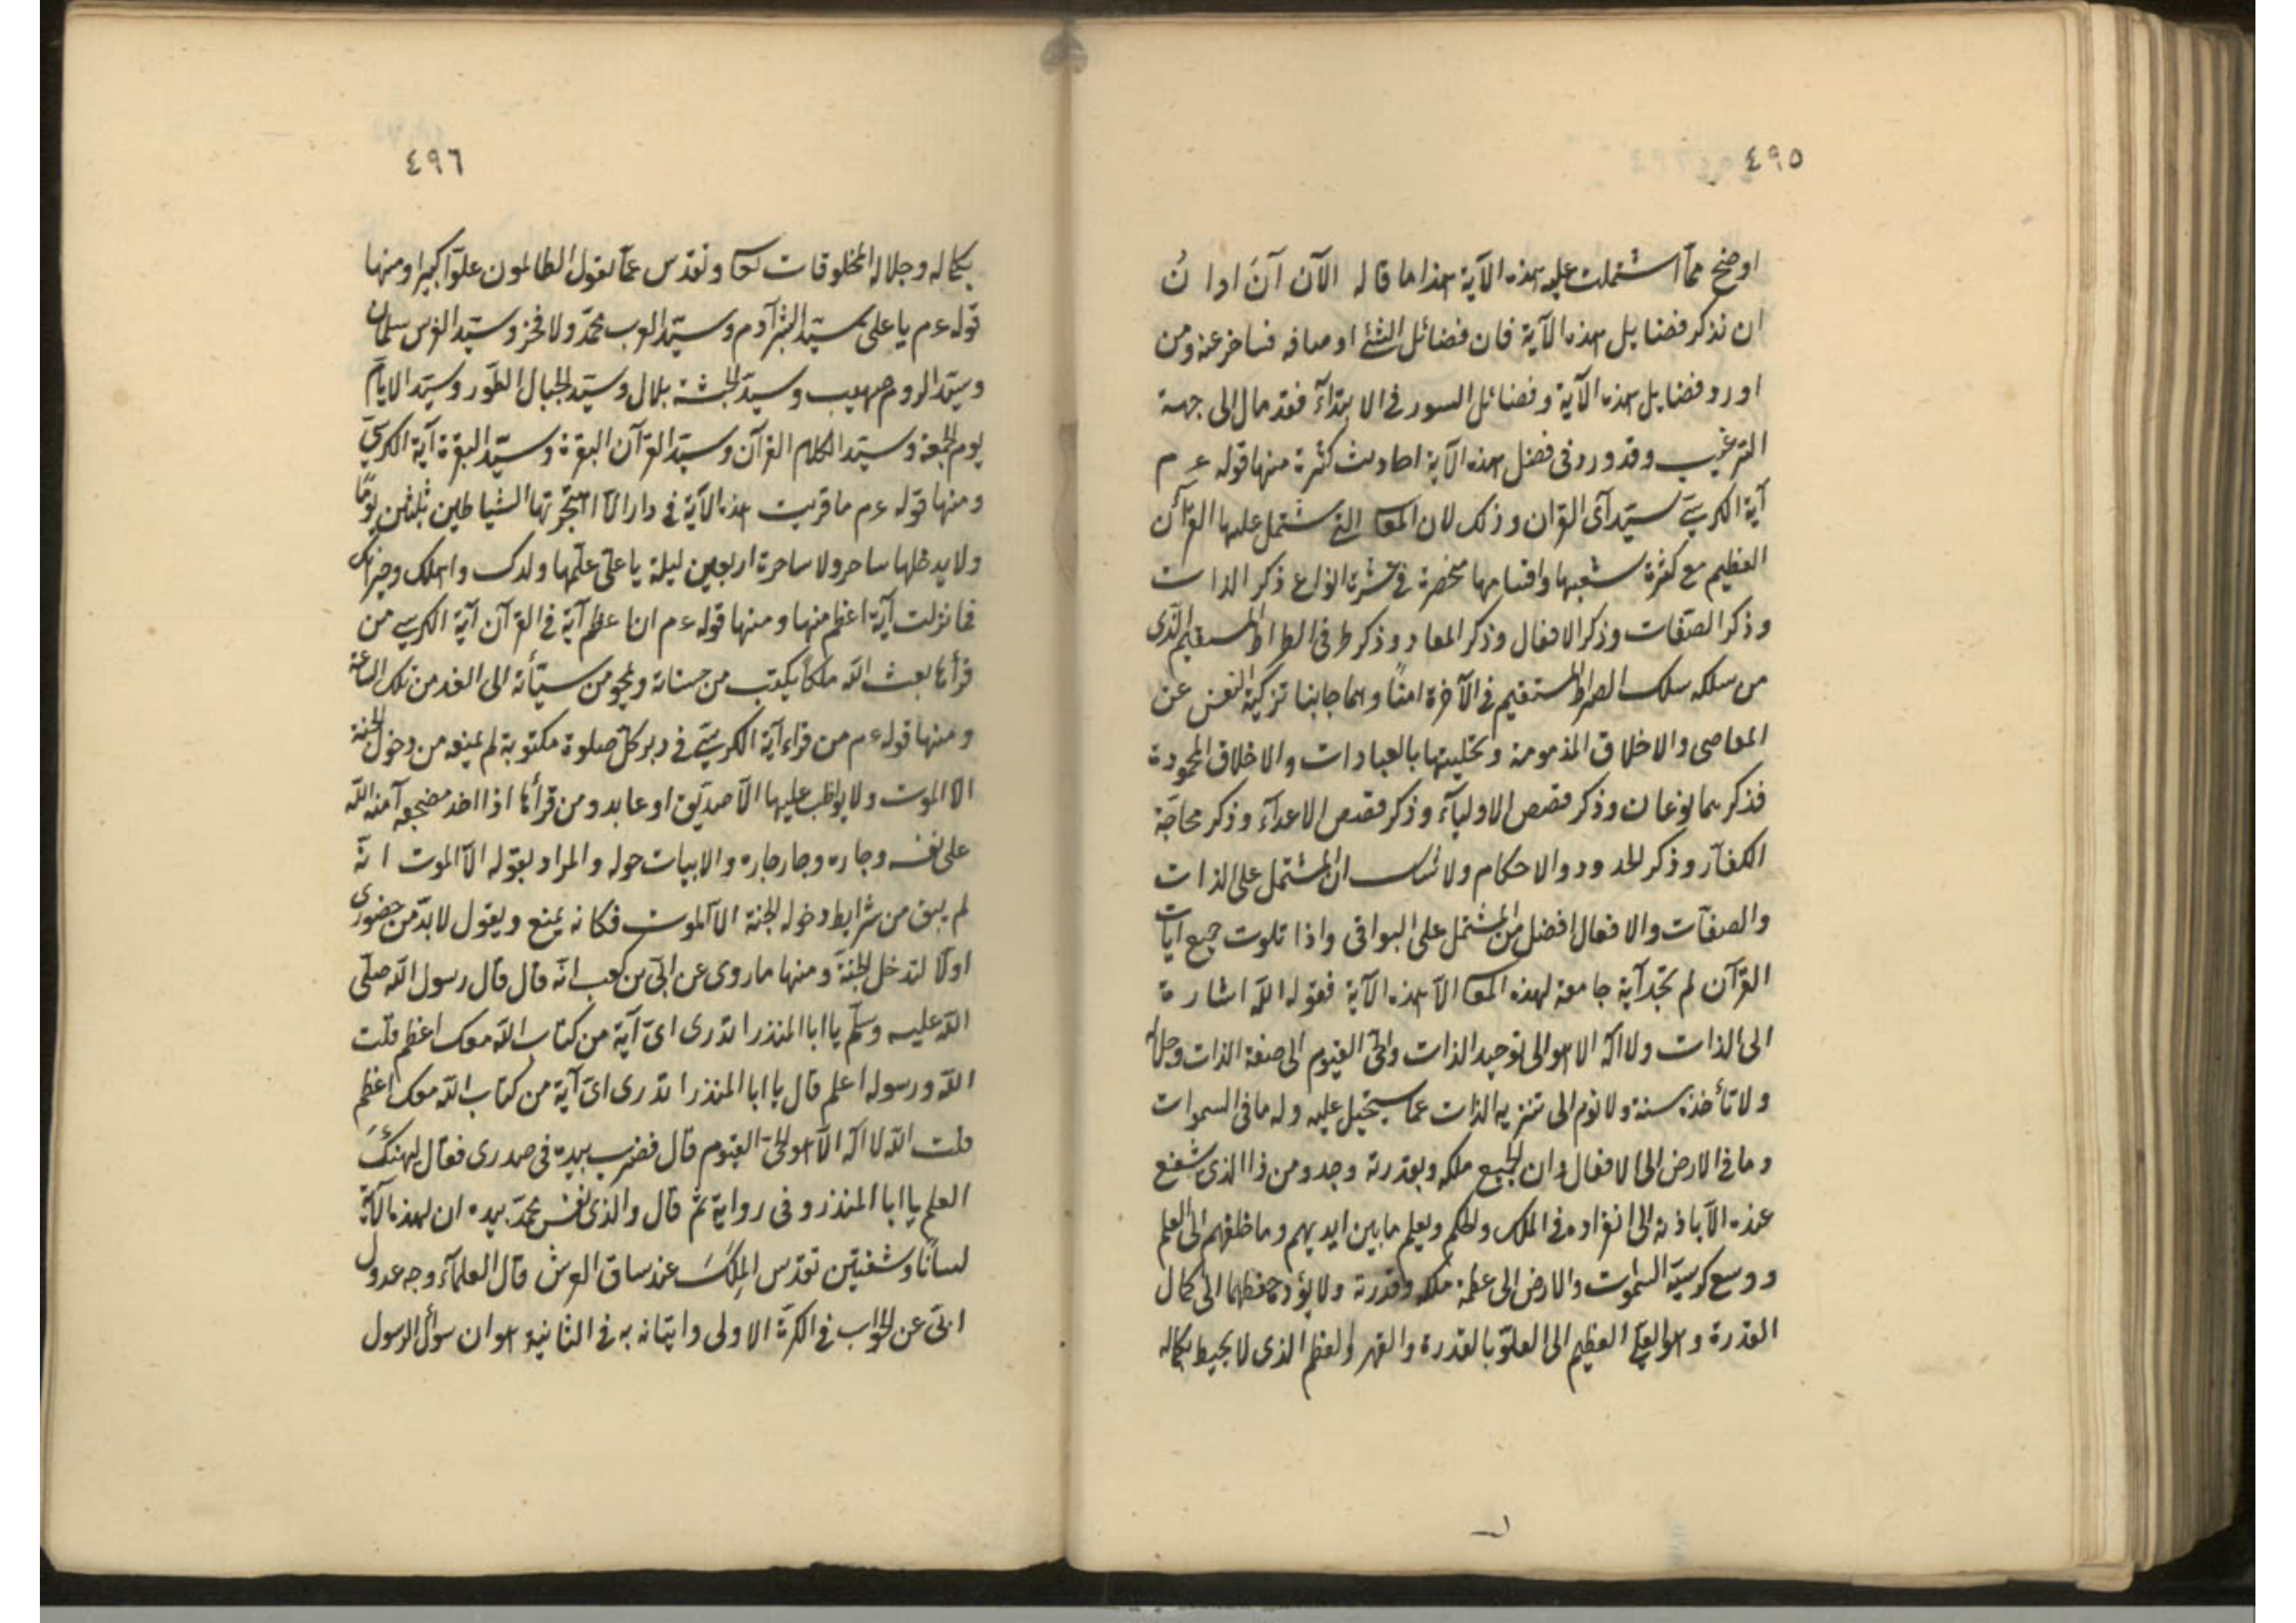 ٤٩٥
اوضح مما اشتملت عليه هذه الآية هذا ما قاله الآن آنَ اوانُ
ان نذكر فضايل هذه الآية فان فضائل الشئ اوصافه فتأخر عنه ومن
اورد فضايل هذه الآية وفضائل السور فى الابتدآء فقد مال الى جهة
الترغيب وقد ورد فى فضل هذه الآية احاديث كثيرة منها قوله ع م
آية الكرسىّ سيّد آى القران وذلك لان المعا التى يشتمل عليها القرآن
العظيم مع كثرة شعبها واقسامها منحصرة فى عشرة انواع ذكر الذات
وذكر الصفات وذكر الافعال وذكر المعاد وذكر الصراط المستقيم الذى
من سلكه سلك الصراط المستقيم فى الآخرة امناً وهما جانبا تزكية النفس عن
المعاصى والاخلاق المذمومة وتحليتها بالعبادات والاخلاق المحمودة
فذكرهما نوعان وذكر قصص الاوليآء وذكر قصص الاعدآء وذكر محاجّة
الكفّار وذكر الحدود والاحكام ولا شك ان المشتمل على الذات
والصفات والافعال افضل من المشتمل على البواقى واذا تلوت جميع آيات
القرآن لم تجد آية جامعة لهذه المعا الا هذه الآية فقوله اللّه اشارة
الى الذات ولا اله الا هو الى توحيد الذات والحىّ القيوم الى صفة الذات وجلاله
ولا تأخذه سنة ولا نوم الى تنزيه الذات عما يستحيل عليه وله ما فى السموات
وما فى الارض الى الافعال وان الجميع ملكه وبقدرته وجد ومن ذا الذى يشفع
عنده الّا باذنه الى انفراده فى الملك والحكم ويعلم ما بين ايديهم وما خلفهم الى العلم
ووسع كرسيّه السموات والارض الى عظمة ملكه وقدرته ولا يؤده حفظهما الى كمال
القدرة وهو العلى العظيم الى العلوّ بالقدرة والقهر والعظم الذى لا يحيط بكماله
٤٩٦
بكماله وجلاله المخلوقات تعا وتقدس عمّا يقول الظالمون علوّا كبيرا ومنها
قوله ع م يا على سيّد البشر آدم وسيّد العرب محمّد ولا فخر وسيّد الفرس سلمان
وسيّد الروم صهيب وسيّد الحبشة بلال وسيّد الجبال الطّور وسيّد الايّام
يوم الجمعة وسيّد الكلام القرآن وسيّد القرآن البقرة وسيّد البقرة آية الكرسىّ
ومنها قوله ع م ما قريت هذه الآية فى دار الّا اهتجرتها الشياطين ثلثين يومًا
ولا يدخلها ساحر ولا ساحرة اربعين ليلة يا على علّمها ولدك واهلك وجيرانك
فما نزلت آية اعظم منها ومنها قوله ع م ان اعظم آية فى القرآن آية الكرسى من
قرأها بعث اللّه ملكاً يكتب من حسناته ويمحو من سيّأته الى الغد من تلك الساعة
ومنها قوله ع م من قراء آية الكرسىّ فى دبر كلّ صلوة مكتوبة لم يمنعه من دخول الجنة
الا الموت ولا يواظب عليها الّا صدّيق او عابد ومن قرأها اذا اخذ مضجعه آمنه اللّه
على نفسه وجاره وجار جاره والابيات حوله والمراد بقوله الّا الموت انّه
لم يبق من شرايط دخوله الجنة الا الموت فكانه يمنع ويقول لا بدّ من حضورى
اولًا لتدخل الجنّة ومنها ما روى عن ابىّ بن كعب انّه قال قال رسول اللّه صلّى
اللّه عليه وسلّم يا ابا المنذر اتدرى اىّ آية من كتاب اللّه معك اعظم قلت
اللّه ورسوله اعلم قال يا ابا المنذر اتدرى اىّ آية من كتاب اللّه معك اعظم
قلت اللّه لا اله الّا هو الحىّ القيوم قال فضرب بيده فى صدرى فقال ليهنئكَ
العلم يا ابا المنذر وفى رواية ثمّ قال والذى نفس محمّد بيده ان لهذه الآية
لسانًا وشفتين تقدّس الملكَ عند ساق العرش قال العلمآء وجه عدول
ابىّ عن الجواب فى الكرّة الاولى واتيانه به فى الثانية هو ان سؤال الرسول